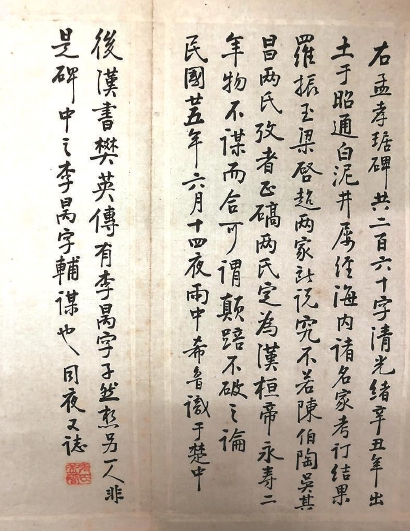 右孟孝琚碑共二百六十字清光緒辛丑年出
土于昭通白泥井屡經海内諸名家考訂結果
羅振玉梁啓超两家彭説究不若陳伯陶吳其
昌两氏攷者正確两氏定為漢桓帝永壽二
年物不謀而合可謂顛踣不破之論
民國廿五年六月十四夜雨中希魯識于楚中
後漢書樊英傳有李昺字子然想另一人非
是碑中之李昺字輔謀也同夜又誌